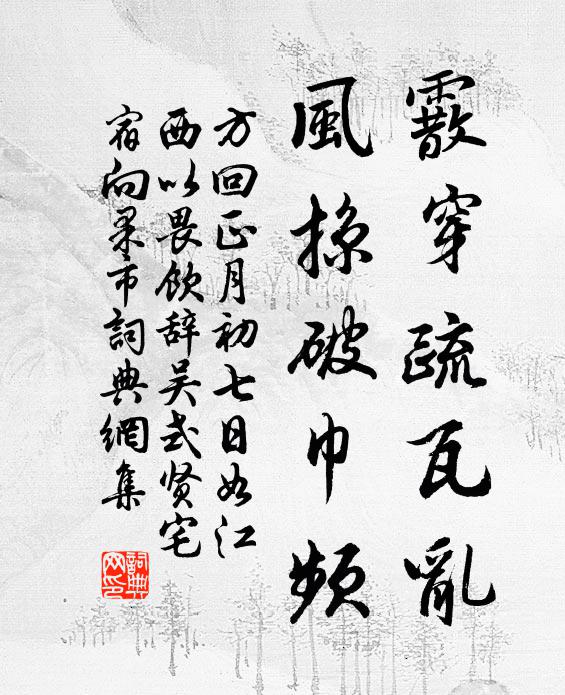 霰穿疏瓦亂
風掠破巾頻
方回正月初七日如江
西以畏飲辞吴式贤宅
宿向杲市詞典網集
詞典
网印